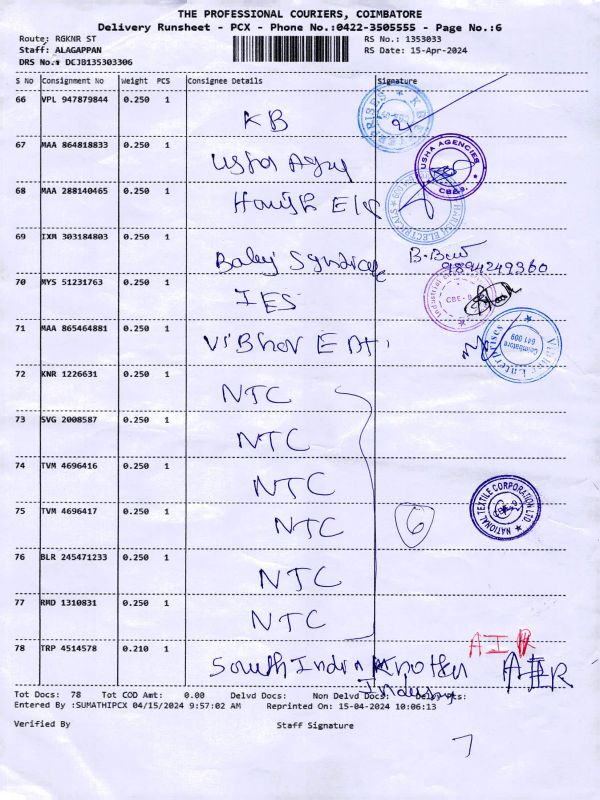 THE PROFESSIONAL COURIERS, COIMBATORE
Delivery Runsheet - PCX - Phone No.:0422-3505555 - Page No.:6
Route: RGKNR ST RS No.: 1353033
Staff: ALAGAPPAN RS Date: 15-Apr-2024
DRS No.: DCJB135303306
S No Consignment No Weight PCS Consignee Details Signature
66 VPL 947879844 0.250 1 KB
67 MAA 864818833 0.250 1 Usha Agy
USHA AGENCIES
CBE-9.
68 MAA 288140465 0.250 1
69 IXM 303184803 0.250 1 Baby
9894249360
70 MYS 51231763 0.250 1 IES
Industrial
CBE-9
71 MAA 865464881 0.250 1 Vibhor Ent
Enterprises
Coimbatore
641 009
72 KNR 1226631 0.250 1 NTC
73 SVG 2008587 0.250 1 NTC
74 TVM 4696416 0.250 1 NTC
75 TVM 4696417 0.250 1 NTC 6
NATIONAL TEXTILE CORPORATION LTD
76 BLR 245471233 0.250 1 NTC
77 RMD 1310831 0.250 1 NTC
AIR
78 TRP 4514578 0.210 1 South India AIR
Tot Docs: 78 Tot COD Amt: 0.00 Delvd Docs: Non Delvd Docs:
Entered By :SUMATHIPCX 04/15/2024 9:57:02 AM Reprinted On: 15-04-2024 10:06:13
Verified By Staff Signature